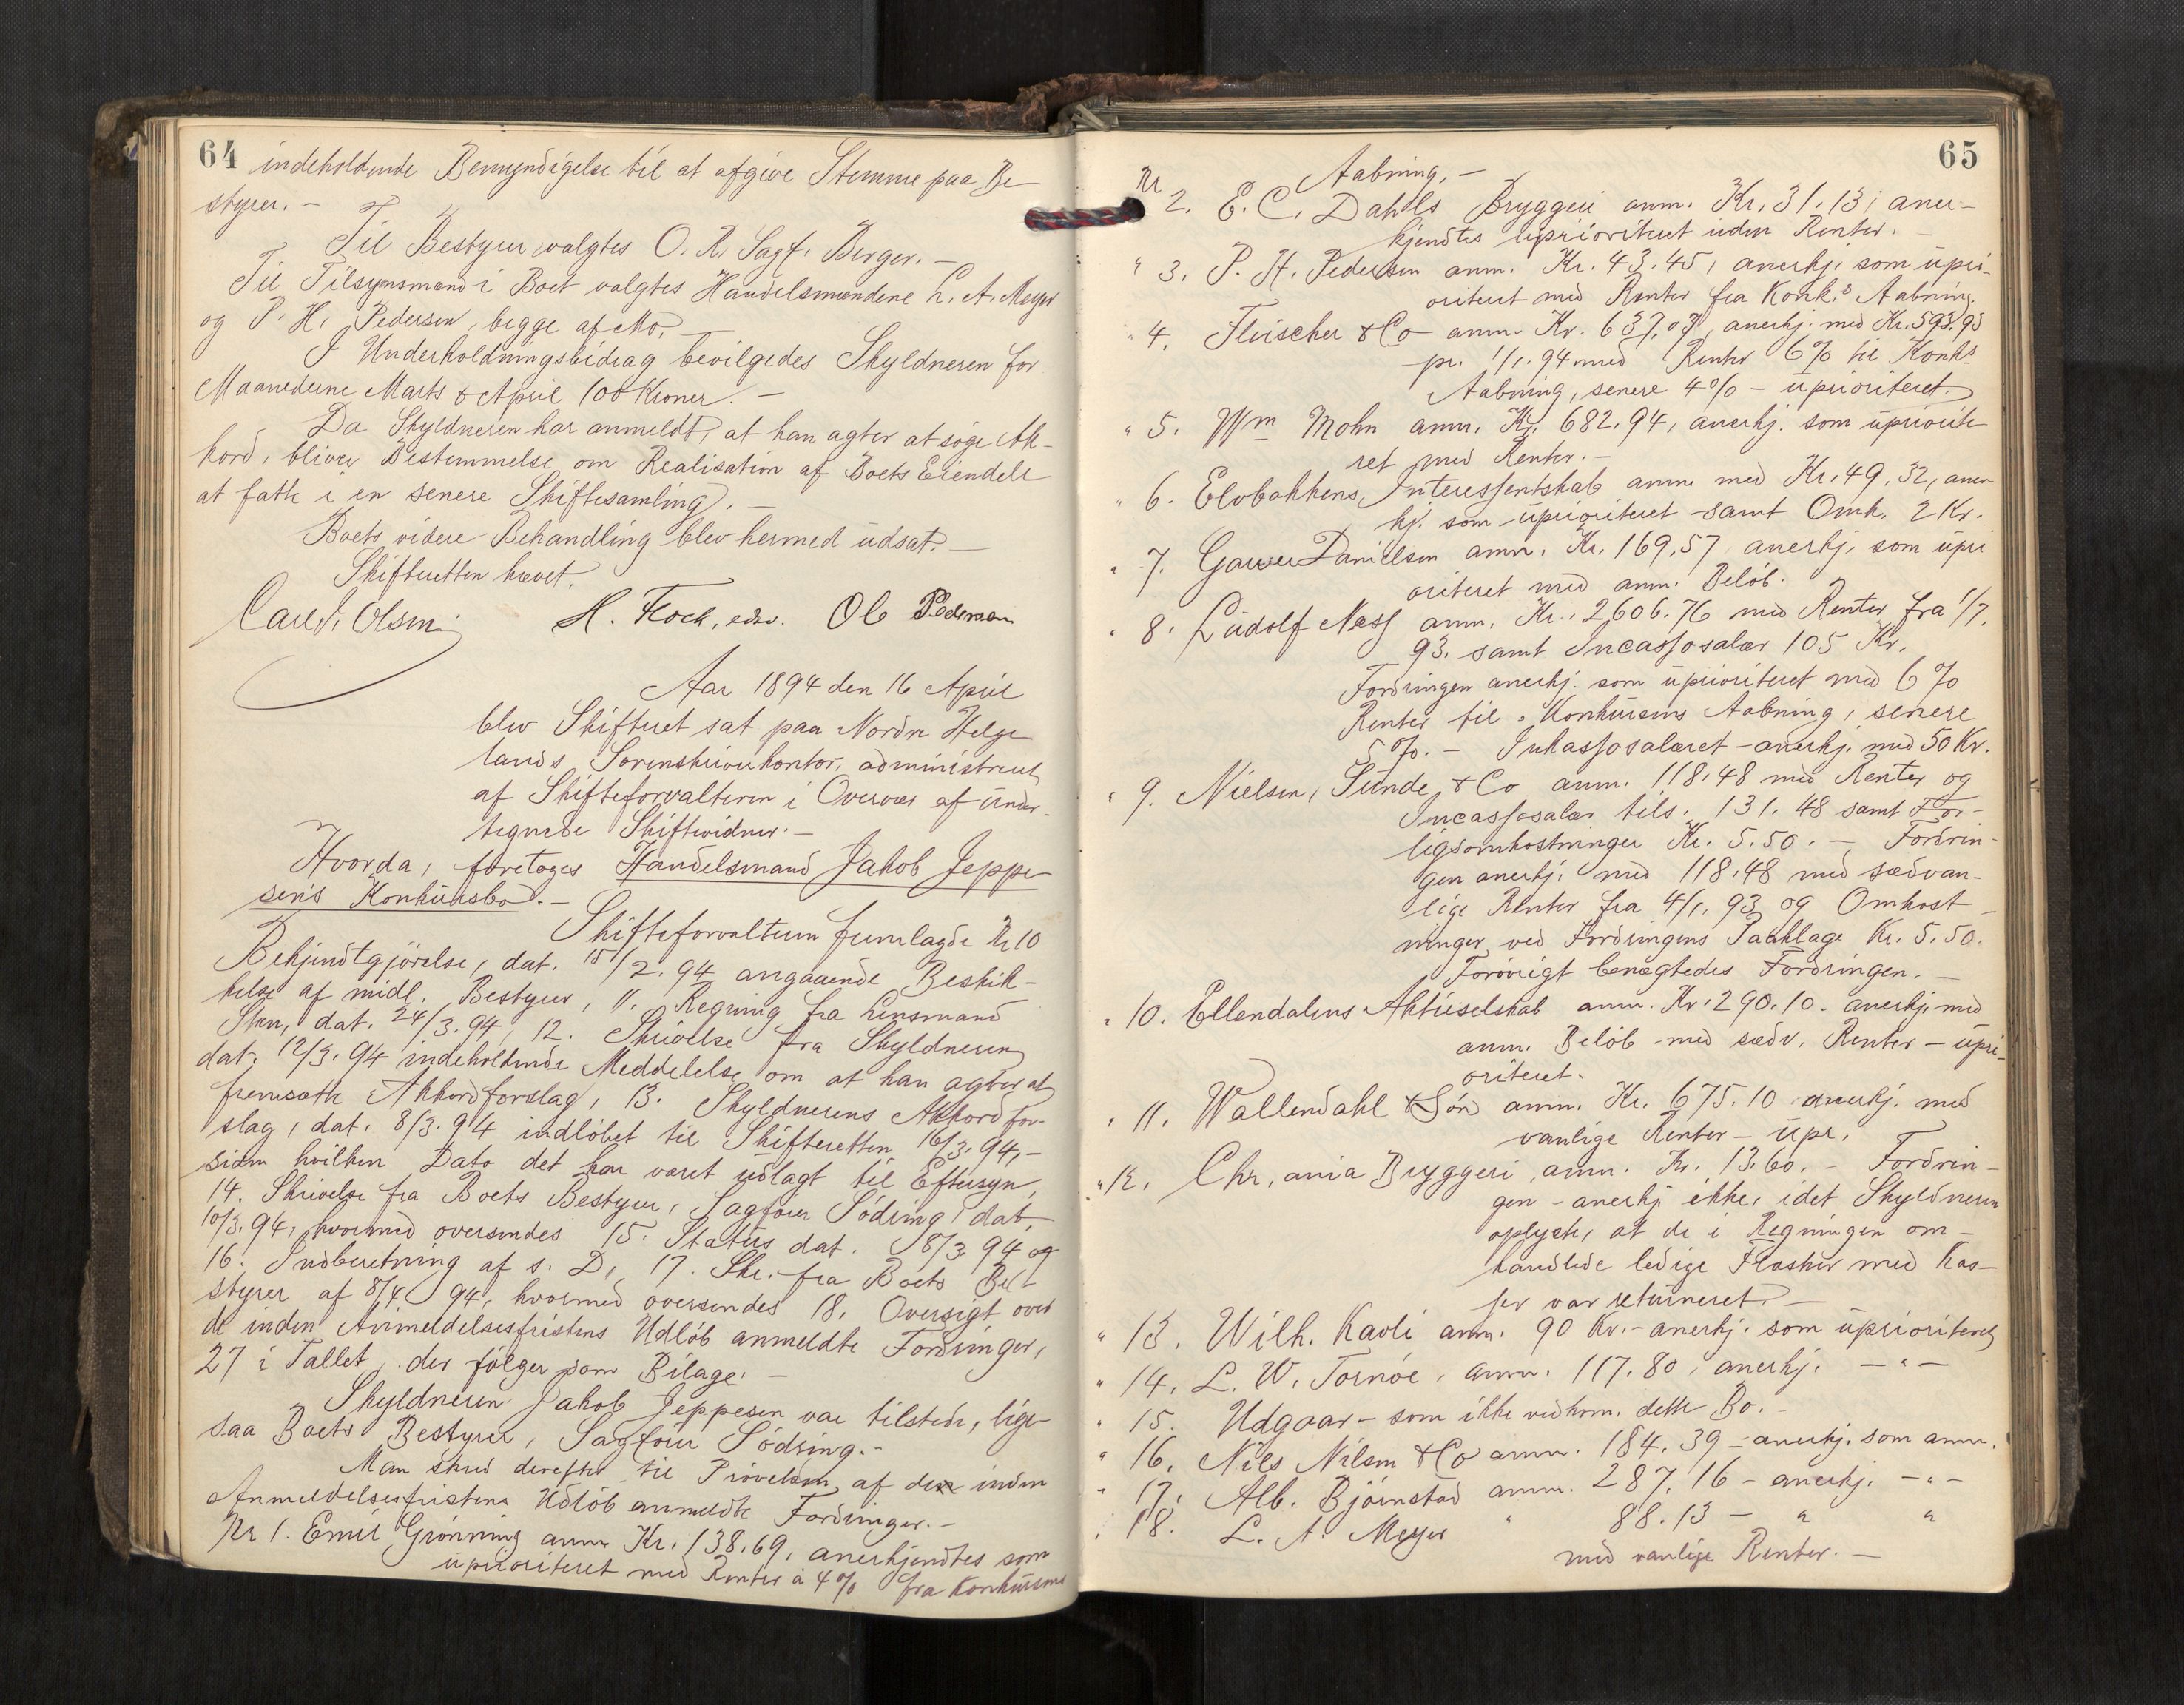 64
indeholdende Bemyndigelse til at afgive Stemme paa Be-
styrer. -
Til Bestyrer valgtes O. R. Sagf. Berger. -
Til Tilsynsmænd i Boet valgtes Handelsmændene L. A. Meyer
og P. H. Pedersen, begge af Mo. -
I Underholdningsbidrag bevilgedes Skyldneren for
Maanederne Marts & April 100 Kroner. -
Da Skyldneren har anmeldt, at han agter at søge Ak-
kord, bliver Bestemmelse om Realisation af Boets Eiendele
at fatte i en senere Skiftesamling. -
Boets videre Behandling blev hermed udsat. -
Skifteretten hævet.
Carl J. Olsen H. Flock, edsv. Ole Pedersen
Aar 1894 den 16 April
blev Skifteret sat paa Nordre Helge-
lands Sorenskriverkontor, administreret
af Skifteforvalteren i Overvær af under-
tegnede Skiftevidner. -
Hvorda, foretoges Handelsmand Jakob Jeppe-
sens Konkursbo. -
Skifteforvalteren fremlagde Nr 10
Bekjendtgjörelse, dat. 15/2. 94 angaaende Beskik-
kelse af midl. Bestyrer, 11. Regning fra Lensmand
Sten, dat. 24/3. 94, 12. Skrivelse fra Skyldneren
dat. 12/3. 94 indeholdende Meddelelse om at han agter at
fremsætte Akkordforslag, 13. Skyldnerens Akkordfor-
slag, dat. 8/3. 94 indløbet til Skifteretten 16/3. 94, -
siden hvilken Dato det har været udlagt til Eftersyn,
14. Skrivelse fra Boets Bestyrer, Sagfører Södring, dat.
10/3. 94, hvormed oversendes 15. Status dat. 8/3 94 og
16. Indberetning af s. D, 17. Skr. fra Boets Be-
styrer af 8/4 94, hvormed oversendes 18. Oversigt over
de inden Anmeldelsesfristens Udlöb anmeldte Fordringer,
27 i Tallet, der fölger som Bilage. -
Skyldneren Jakob Jeppesen var tilstede, lige-
saa Boets Bestyrer, Sagförer Södring. -
Man skred derefter til Prövelsen af de inden
Anmeldelsesfristens Udlöb anmeldte Fordringer. -
Nr 1. Emil Grönning anm. Kr. 138.69, anerkjendtes som
uprioriteret med Renter à 4% fra Konkursens
65
Aabning. -
Nr 2. E. C. Dahls Bryggeri anm. Kr. 31.13; aner-
kjendtes uprioriteret uden Renter. -
" 3. P. H. Pedersen anm. Kr. 43.45, anerkj. som upri-
oriteret med Renter fra Konk.s Aabning.
" 4. Fleischer & Co anm. Kr. 637.07, anerkj. med Kr. 593.95
pr. 1/1. 94 med Renter 6% til Konks
Aabning, senere 4% - uprioriteret.
" 5. Wm Mohn anm. Kr. 682.94, anerkj. som upriorite-
ret med Renter. -
" 6. Elvbakkens Interessentskab anm. med Kr. 49,32, aner-
kj. som uprioriteret samt Omk. 2 Kr.
" 7. Garver Danielsen anm. Kr. 169,57 anerkj. som upri
oriteret med anm. Belöb.
" 8. Ludolf Næss anm. Kr. 2,606.76 med Renter fra 1/7.
93. samt Incassosalær 105 Kr.
Fordringen anerkj. som uprioriteret med 6%
Renter til Konkursens Aabning, senere
5%. - Inkassosalæret - anerkj. med 50 Kr.
" 9. Nielsen, Sunde & Co anm. 118.48 med Renter og
Incassosalær tils. 131.48 samt For-
ligsomkostninger Kr. 5.50. - Fordrin-
gen anerkj. med 118.48 med sædvan-
lige Renter fra 4/1. 93 og Omkost-
ninger ved Fordringens Paaklage Kr. 5.50.
Forövrigt benægtedes Fordringen. -
" 10. Ellendalens Aktieselskab anm. Kr. 290.10. anerkj. med
anm. Belöb med sædv. Renter - upri-
oriteret.
" 11. Wallendahl & Sön anm. Kr. 675.10 anerkj. med
vanlige Renter - upr.
" 12. Chr.ania Bryggeri anm. Kr. 13.60. - Fordrin-
gen - anerkj. ikke, idet Skyldneren
oplyste, at de i Regningen om-
handlede ledige Flasker med Kas-
ser var returneret. -
" 13. Wilh. Kavli anm. 90 Kr. - anerkj. som uprioriteret
" 14. L. W. Tornöe, anm. 117.80, anerkj. - " -
" 15. Udgaar - som ikke vedkom. dette Bo. -
" 16. Nils Nilsen & Co anm. 184.39 - anerkj. som anm.
" 17. Alb. Björnstad anm. 287.16 - anerkj. - " -
" 18. L. A. Meyer " 88.13 - " "
med vanlige Renter. -